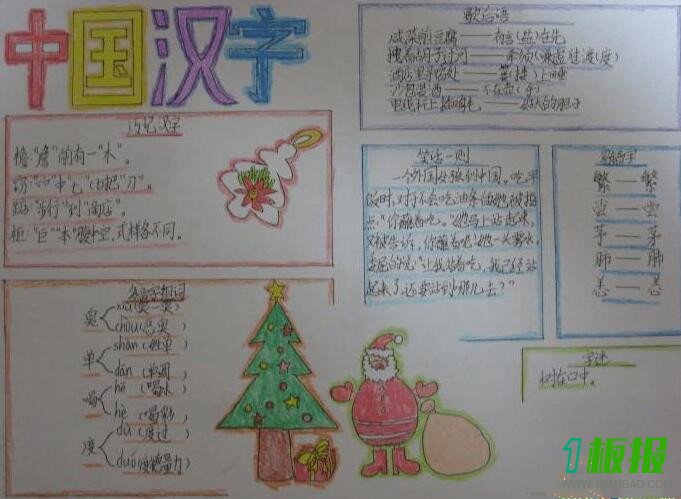 中国汉字
歇后语
咸菜煎豆腐——有言(盐)在先
酒店里
沙包装
电线杆上插鸡毛——好大的胆子
巧记汉字
檐:"詹"前有一"木"。
窃:"穴"中"七"(切把"刀"。
踮:"步行"到"商店"。
柜:"巨""木"腹中空,式样各不同。
笑话一则
一个外国女孩到中国。吃早
饭时,对于不会吃油条,她被指
点:"你蘸着吃。"她马上站起来,
又被告诉,你蘸着吧!她一头雾水,
委屈的说:"让我站着吃,我已经站
起来了,还要站到哪儿去?"
易错字
繁——繁
尝——尝
茅——茅
肺——肺
恙——恙
多音字组词
臭
xiù(臭)
chòu(恶臭)
单
shàn(姓单)
dān(单调)
喝
hē(喝水)
hè(喝彩)
度
dù(度过)
duó(度德量力)
字迷
树在口中。
1板报
WWW.1BANBAO.COM